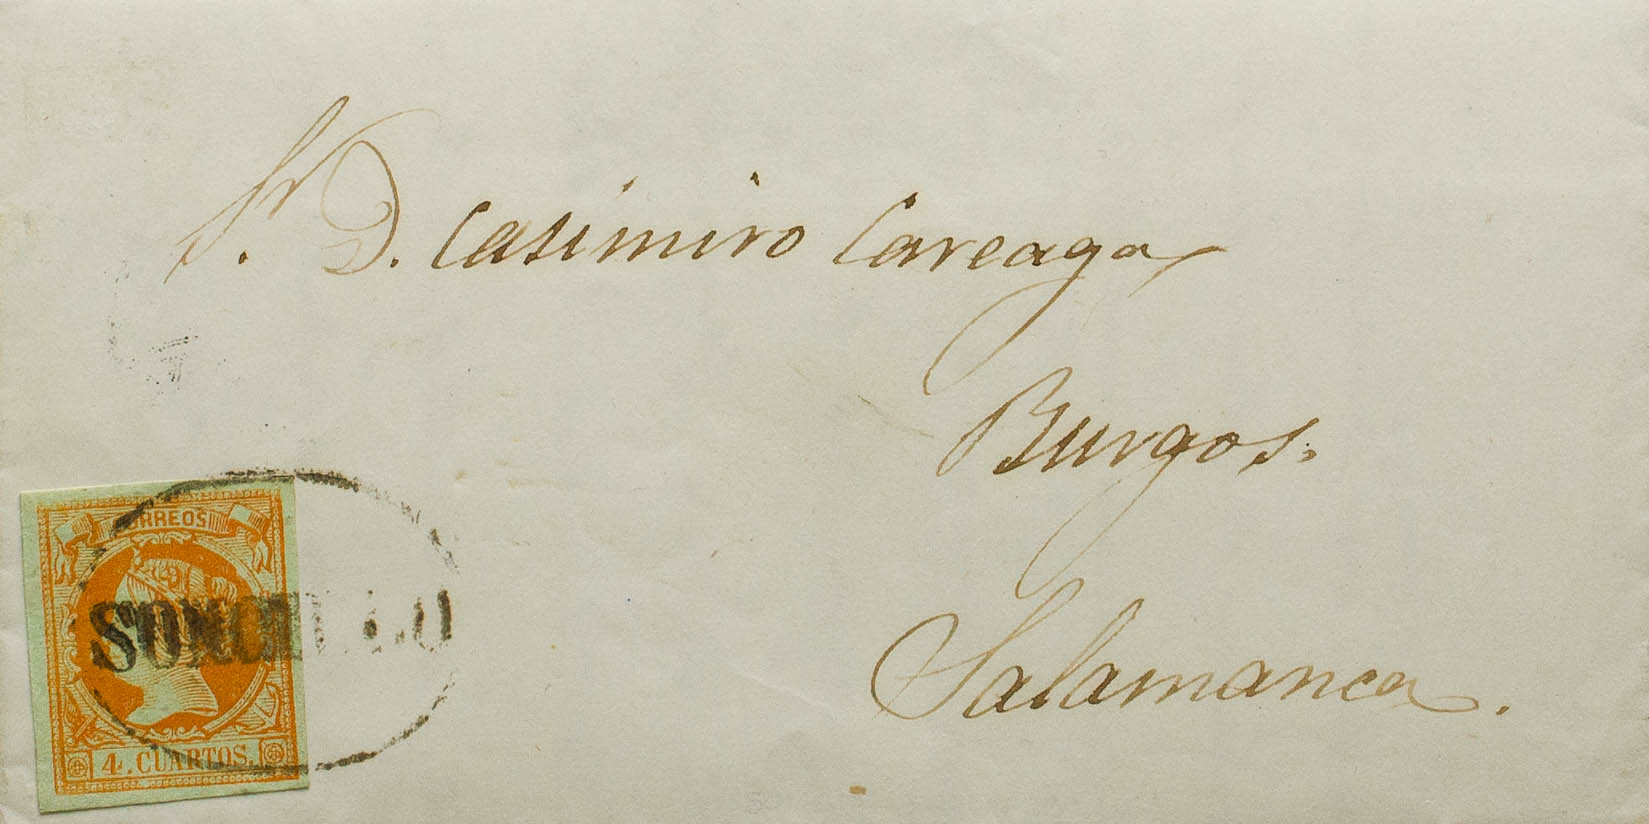 Sr. D. Casimiro Careaga
Burgos.
Salamanca.
CORREOS
SONCILLO
4. CUARTOS.